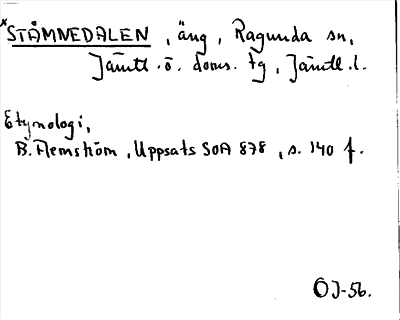 *STÅMNEDALEN, äng, Ragunda sn,
Jämtl. ö. doms. tg, Jämtl. l.
Etymologi,
B. Flemström, Uppsats SOA 878, s. 140 f.
ÖJ-56.